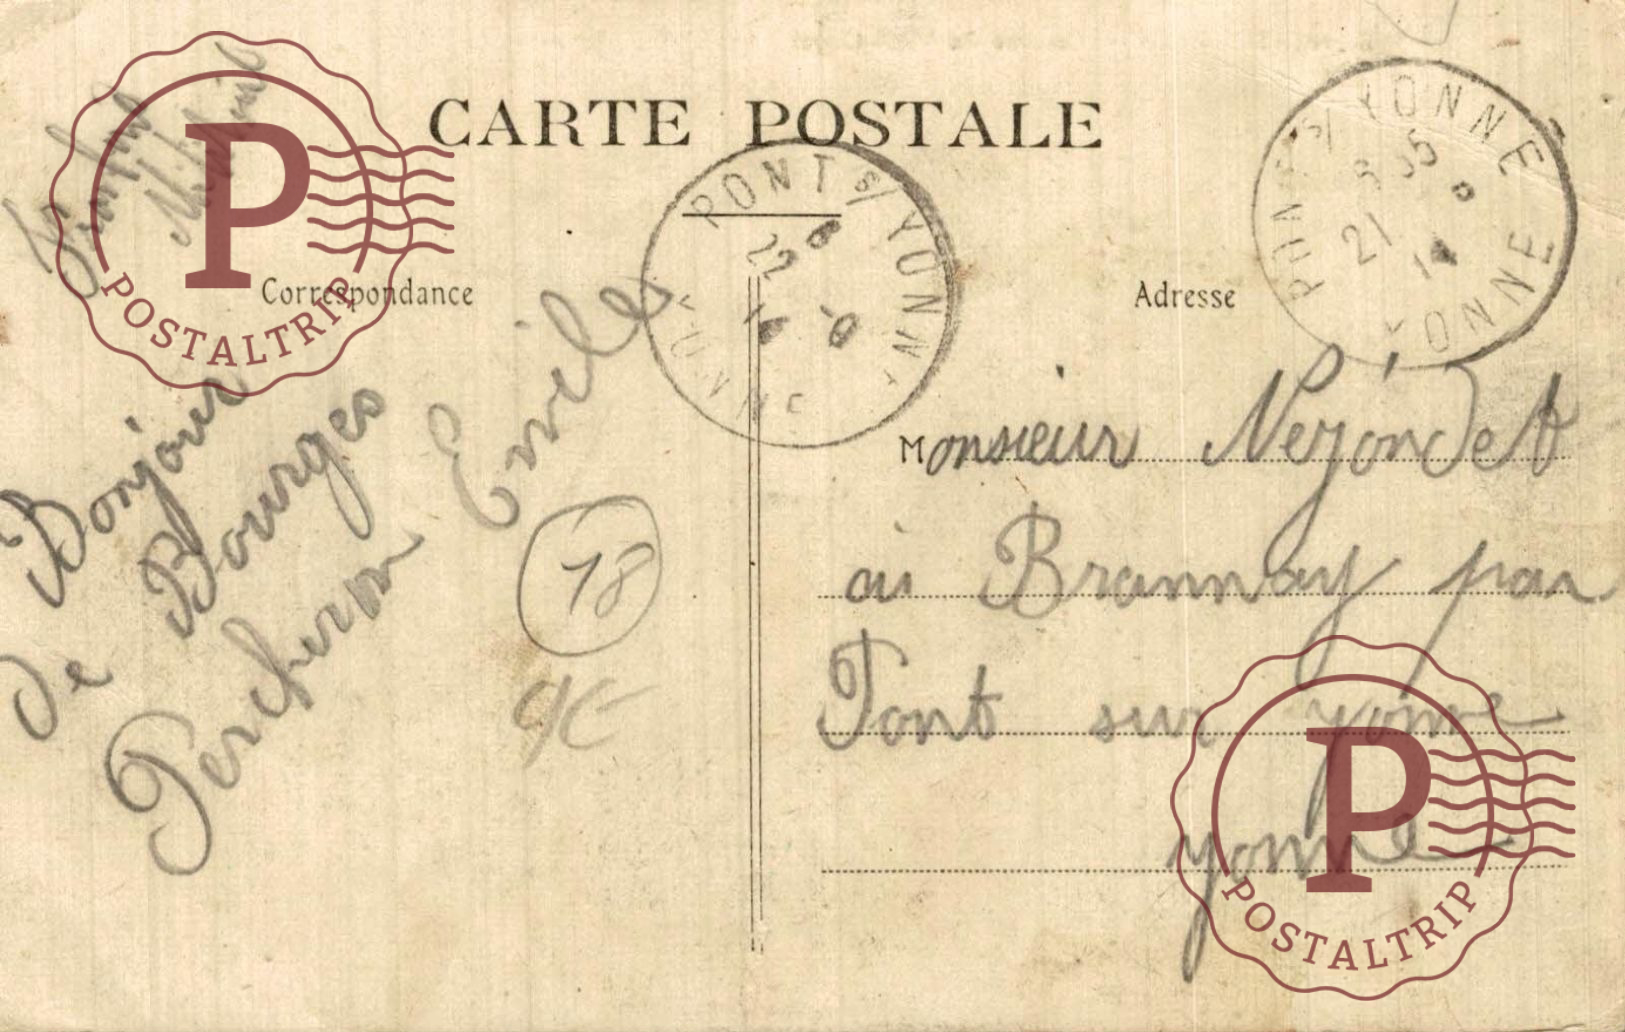 CARTE POSTALE
Correspondance
Adresse
PONT S/ YONNE
22 6
14
YONNE
PONT S/ YONNE
21 6
14
YONNE
Bonjour
de Bourges
Percheron Emile
18
Monsieur Nezondet
a Brannay par
Pont sur yonne
yonne
P
POSTALTRIP
P
POSTALTRIP